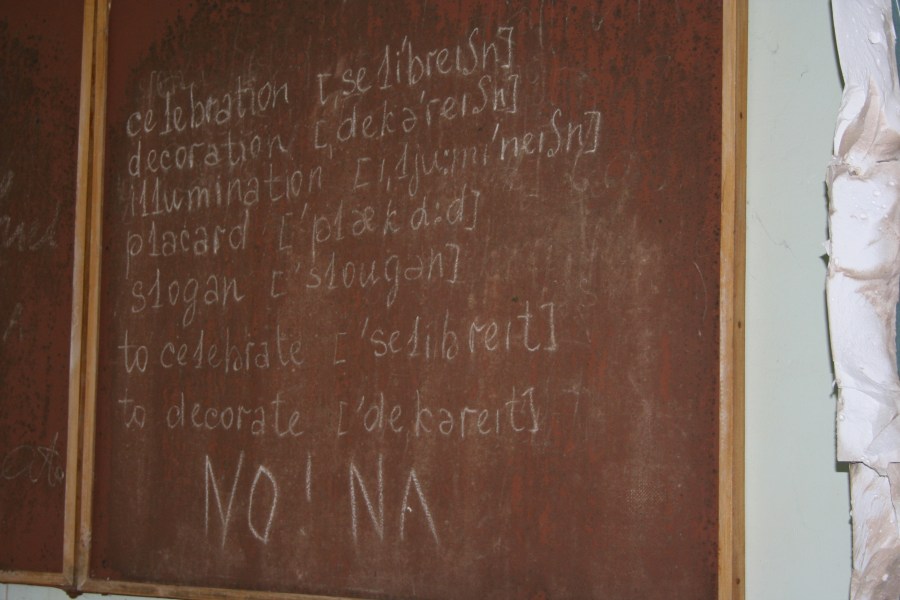 celebration [,se1i'breıʃn]
decoration [,dekə'reıʃn]
illumination [ı,1ju:mı'neıʃn]
placard ['plækɑ:d]
slogan ['slougən]
to celebrate ['selibreit]
to decorate ['dekəreıt]
NO' NA